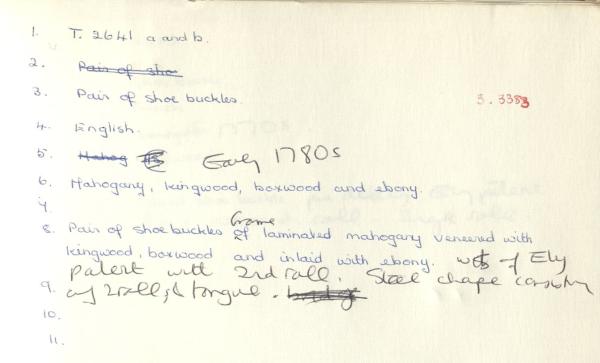 1. T. 2641 a and b.
2. Pair of sho
3. Pair of shoe buckles. 3.3383
4. English.
5. Mahog Early 1780s
6. Mahogany, kingwood, boxwood and ebony.
7.
8. Pair of shoe buckles frame of laminated mahogany veneered with
kingwood, boxwood and inlaid with ebony. of Ely
patent with 2nd roll. Steel chape
9. of 2 rolls, & tongue.
10.
11.